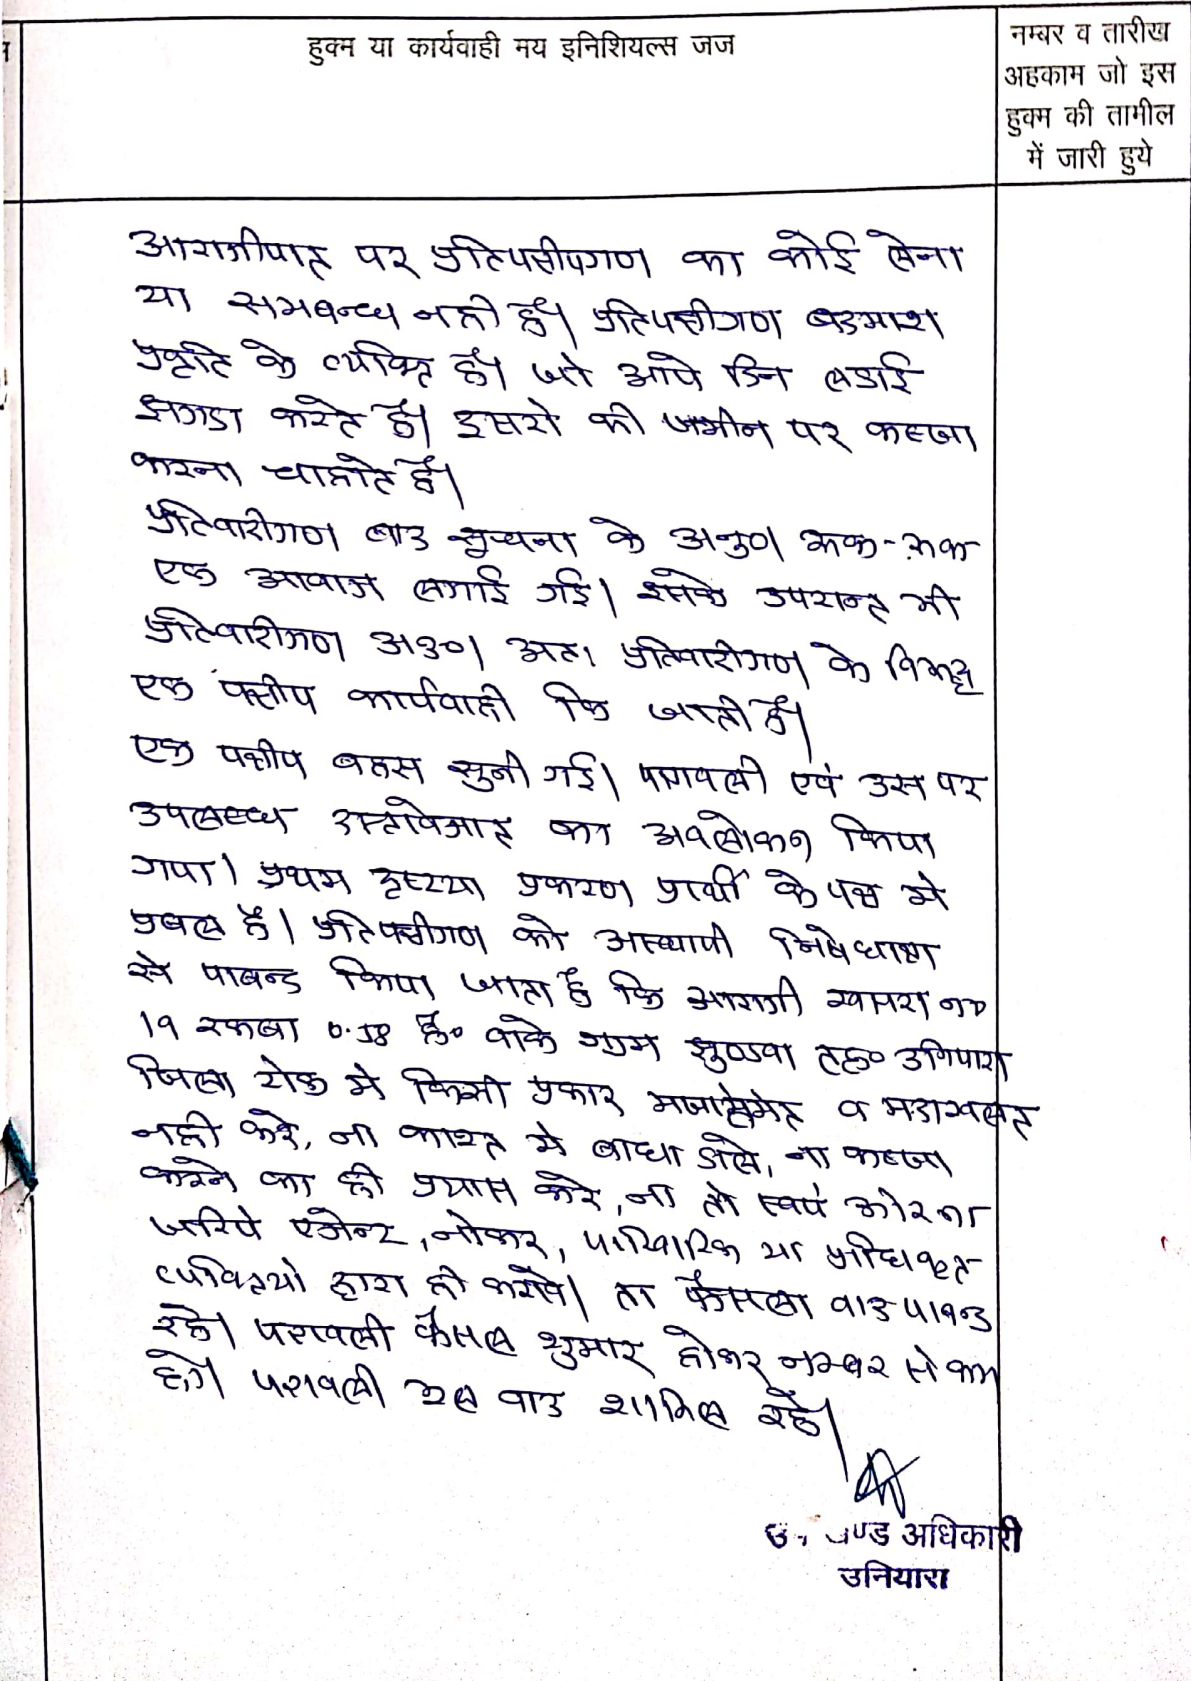 हुक्म या कार्यवाही मय इनिशियल्स जज
नम्बर व तारीख
अहकाम जो इस
हुक्म की तामील
में जारी हुये
आराजीयात पर प्रतिपक्षीयगण का कोई लेना
या सम्बन्ध नही है। प्रतिपक्षीगण बदमाश
प्रवृति के व्यक्ति है। जो आये दिन लडाई
झगडा करते है। दुसरो की जमीन पर कब्जा
करना चाहते है।
प्रतिवादीगण बाद सूचना के अनु० रूक-रूक
एक आवाज लगाई गई। इसके उपरान्त भी
प्रतिवादीगण अउ०। अतः प्रतिवादीगण के विरूद्ध
एक पक्षीय कार्यवाही कि जाती है।
एक पक्षीय बहस सुनी गई। पत्रावली एवं उस पर
उपलब्ध दस्तावेजात का अवलोकन किया
गया। प्रथम दृष्टया प्रकरण प्रार्थी के पक्ष मे
प्रबल है। प्रतिपक्षीगण को अस्थायी निषेधाज्ञा
से पाबन्द किया जाता है कि आराजी खसरा न०
19 रकबा 0.58 है० वाके ग्राम झुण्डवा तह० उनियारा
जिला टोंक मे किसी प्रकार मजाहेमत व मदाखलत
नही करे, ना काश्त मे बाधा डाले, ना कब्जा
करने का ही प्रयास करे, ना तो स्वयं करे ना
जरिये एजेन्ट, नोकर, पारिवारिक या प्राधिकृत
व्यक्तियो द्वारा ही करावे। ता फैसला वाद पाबन्द
रहे। पत्रावली फैसल शुमार होकर नम्बर से कम
हो। पत्रावली मूल वाद शामिल रहे।
ण्ड अधिकारी
उनियारा